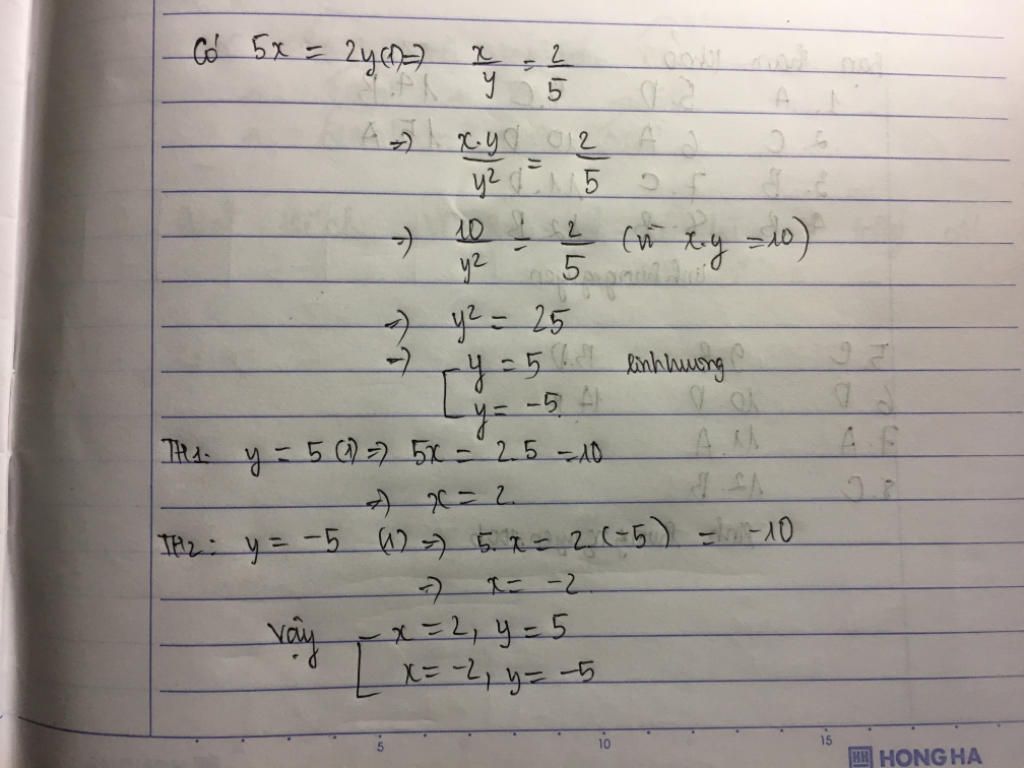 Có 5x = 2y (1) => x/y = 2/5
=> x.y/y² = 2/5
=> 10/y² = 2/5 (vì x.y = 10)
=> y² = 25
=> [ y = 5 linhhuong
y = -5
TH1: y = 5 (1) => 5x = 2.5 = 10
=> x = 2.
TH2: y = -5 (1) => 5.x = 2.(-5) = -10
=> x = -2
Vậy [ x = 2, y = 5
x = -2, y = -5
5 10 15
HONG HA